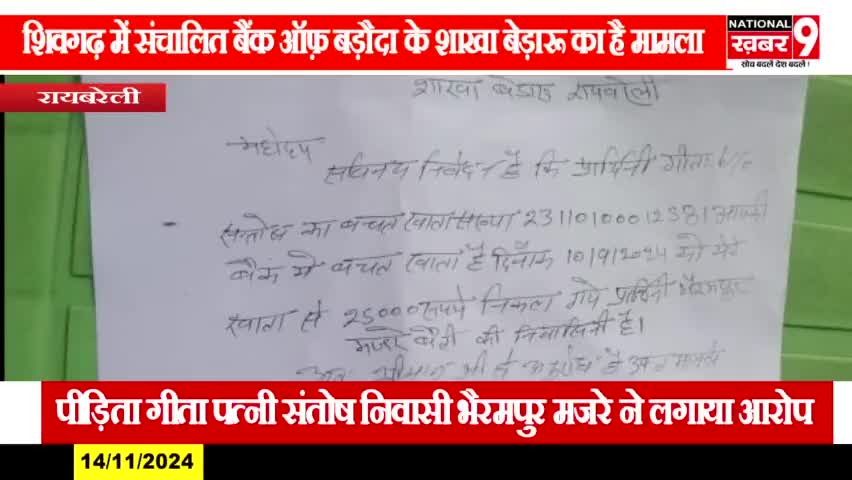 शिवगढ़ में संचालित बैंक ऑफ़ बड़ौदा के शाखा बेड़ारू का है मामला
NATIONAL
ख़बर 9
सोच बदलें देश बदलें !
रायबरेली
शाखा बेड़ारू रायबरेली
महोदय
सविनय निवेदन है कि प्रार्थिनी गीता
सन्तोष का बचत खाता संख्या 23110100012381 आपकी
बैंक में बचत खाता है दिनाँक 10/9/2024 को मेरे
खाता से 25000 रूपये निकल गये प्रार्थिनी भैरमपुर
मजरे बैंती की निवासिनी है।
अतः श्रीमान जी से अनुरोध है
पीड़िता गीता पत्नी संतोष निवासी भैरमपुर मजरे ने लगाया आरोप
14/11/2024